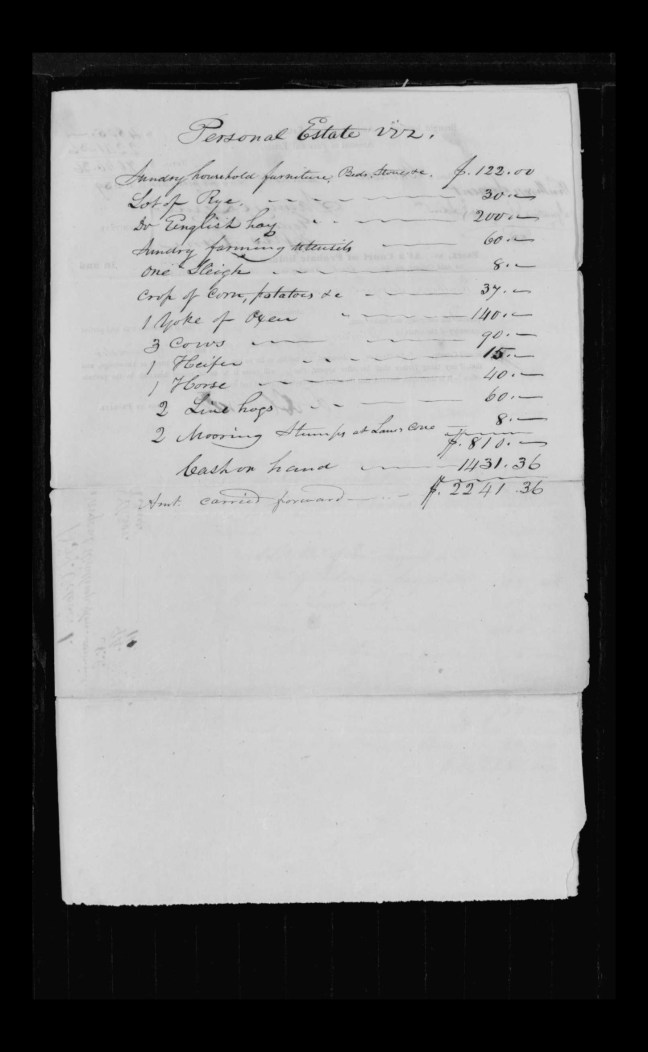 Personal Estate viz.
Sundry household furniture, Beds, Stoves &c. $.122.00
Lot of Rye. 30.—
Do English hay 200.—
Sundry farming utensils 60.—
One Sleigh 8.—
Crop of Corn, potatoes &c 37.—
1 Yoke of Oxen 140.—
3 Cows 90.—
1 Heifer 15.—
1 Horse 40.—
2 Live hogs 60.—
2 Mooring Stumps at 8.—
$.810.—
Cash on hand 1431.36
Amt. carried forward $.2241.36